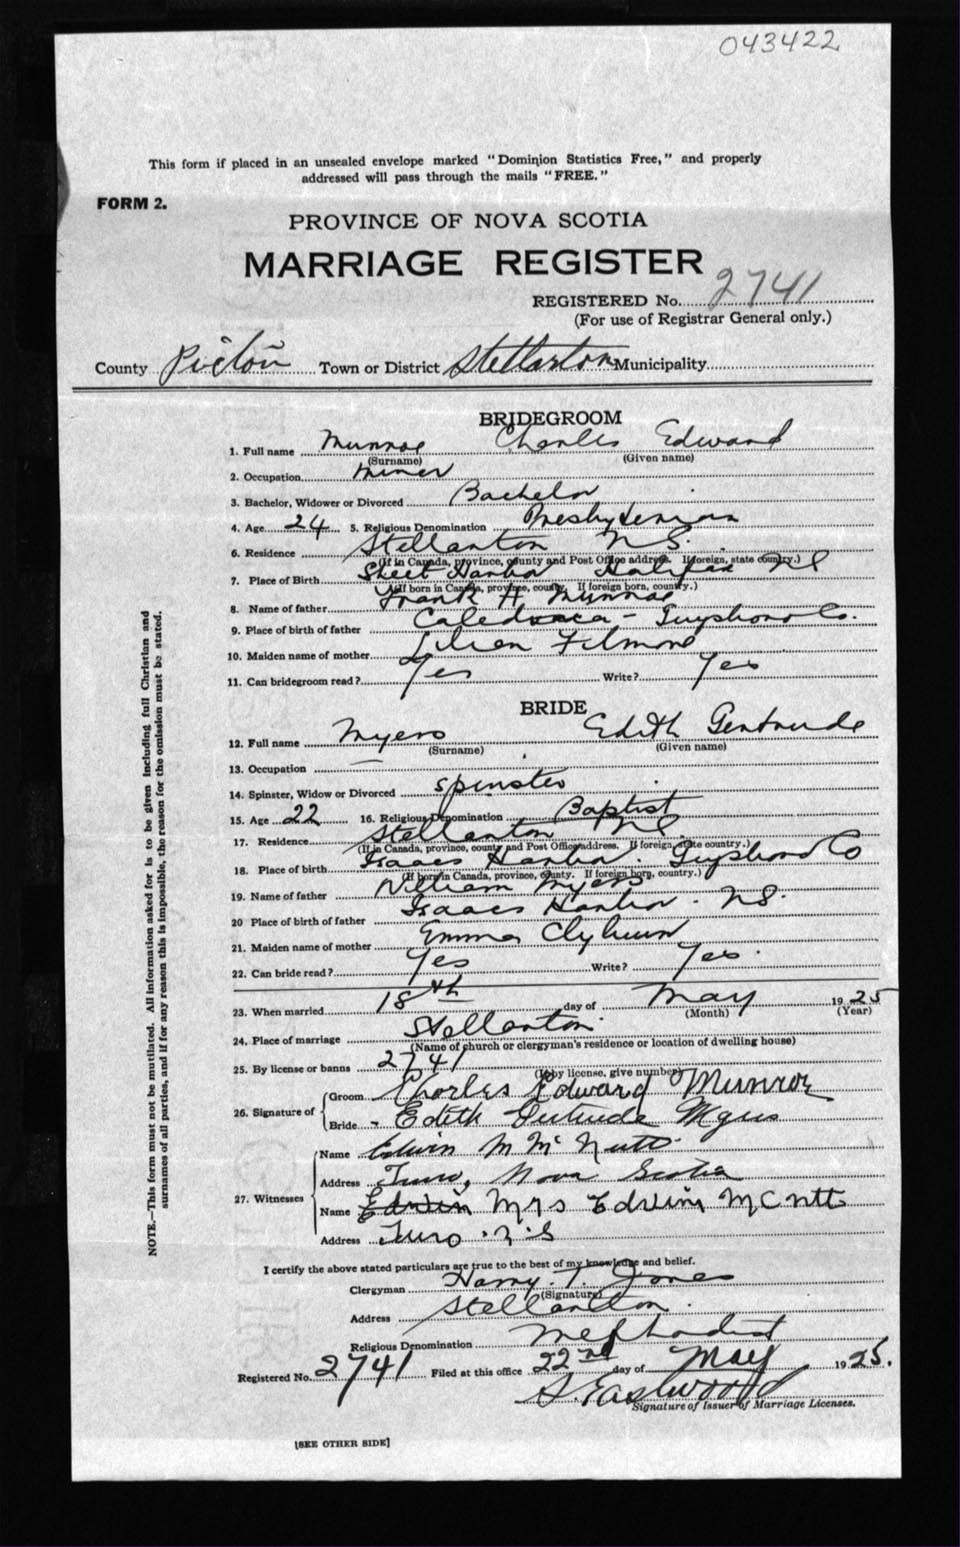 043422
This form if placed in an unsealed envelope marked "Dominion Statistics Free," and properly
addressed will pass through the mails "FREE."
FORM 2.
PROVINCE OF NOVA SCOTIA
MARRIAGE REGISTER
REGISTERED No. 2741
(For use of Registrar General only.)
County Pictou Town or District Stellarton Municipality
BRIDEGROOM
1. Full name Munroe Charles Edward
(Surname) (Given name)
2. Occupation Miner
3. Bachelor, Widower or Divorced Bachelor
4. Age 24 5. Religious Denomination Presbyterian
6. Residence Stellarton N.S.
(If in Canada, province, county and Post Office address. If foreign, state country.)
7. Place of Birth Sheet Harbor Halifax NS
(If born in Canada, province, county. If foreign born, country.)
8. Name of father Frank H Munroe
9. Place of birth of father Caledonia - Guysboro Co.
10. Maiden name of mother Lilian Filmore
11. Can bridegroom read? Yes Write? Yes
BRIDE
12. Full name Myers Edith Gertrude
(Surname) (Given name)
13. Occupation
14. Spinster, Widow or Divorced Spinster
15. Age 22 16. Religious Denomination Baptist
17. Residence Stellarton NS.
(If in Canada, province, county and Post Office address. If foreign, state country.)
18. Place of birth Isaacs Harbor. Guysboro Co
(If born in Canada, province, county. If foreign born, country.)
19. Name of father William Myers
20 Place of birth of father Isaacs Harbor. NS.
21. Maiden name of mother Emma
22. Can bride read? Yes Write? Yes.
23. When married 18th day of May 1925
(Month) (Year)
24. Place of marriage Stellarton.
(Name of church or clergyman's residence or location of dwelling house)
25. By license or banns 2741
(If by license, give number)
26. Signature of Groom Charles Edward Munroe
Bride Edith Gertrude Myers
27. Witnesses
Name Edwin M McNutt
Address Truro, Nova Scotia
Name Edwin Mrs Edwin McNutt
Address Truro. N.S
I certify the above stated particulars are true to the best of my knowledge and belief.
Clergyman Harry. T. Jones
(Signature)
Address Stellarton.
Religious Denomination Methodist
Registered No. 2741 Filed at this office 22nd day of May 1925.
S. Eastwood
Signature of Issuer of Marriage Licenses.
[SEE OTHER SIDE]
NOTE.—This form must not be mutilated. All information asked for is to be given including full Christian and
surnames of all parties, and if for any reason this is impossible, the reason for the omission must be stated.